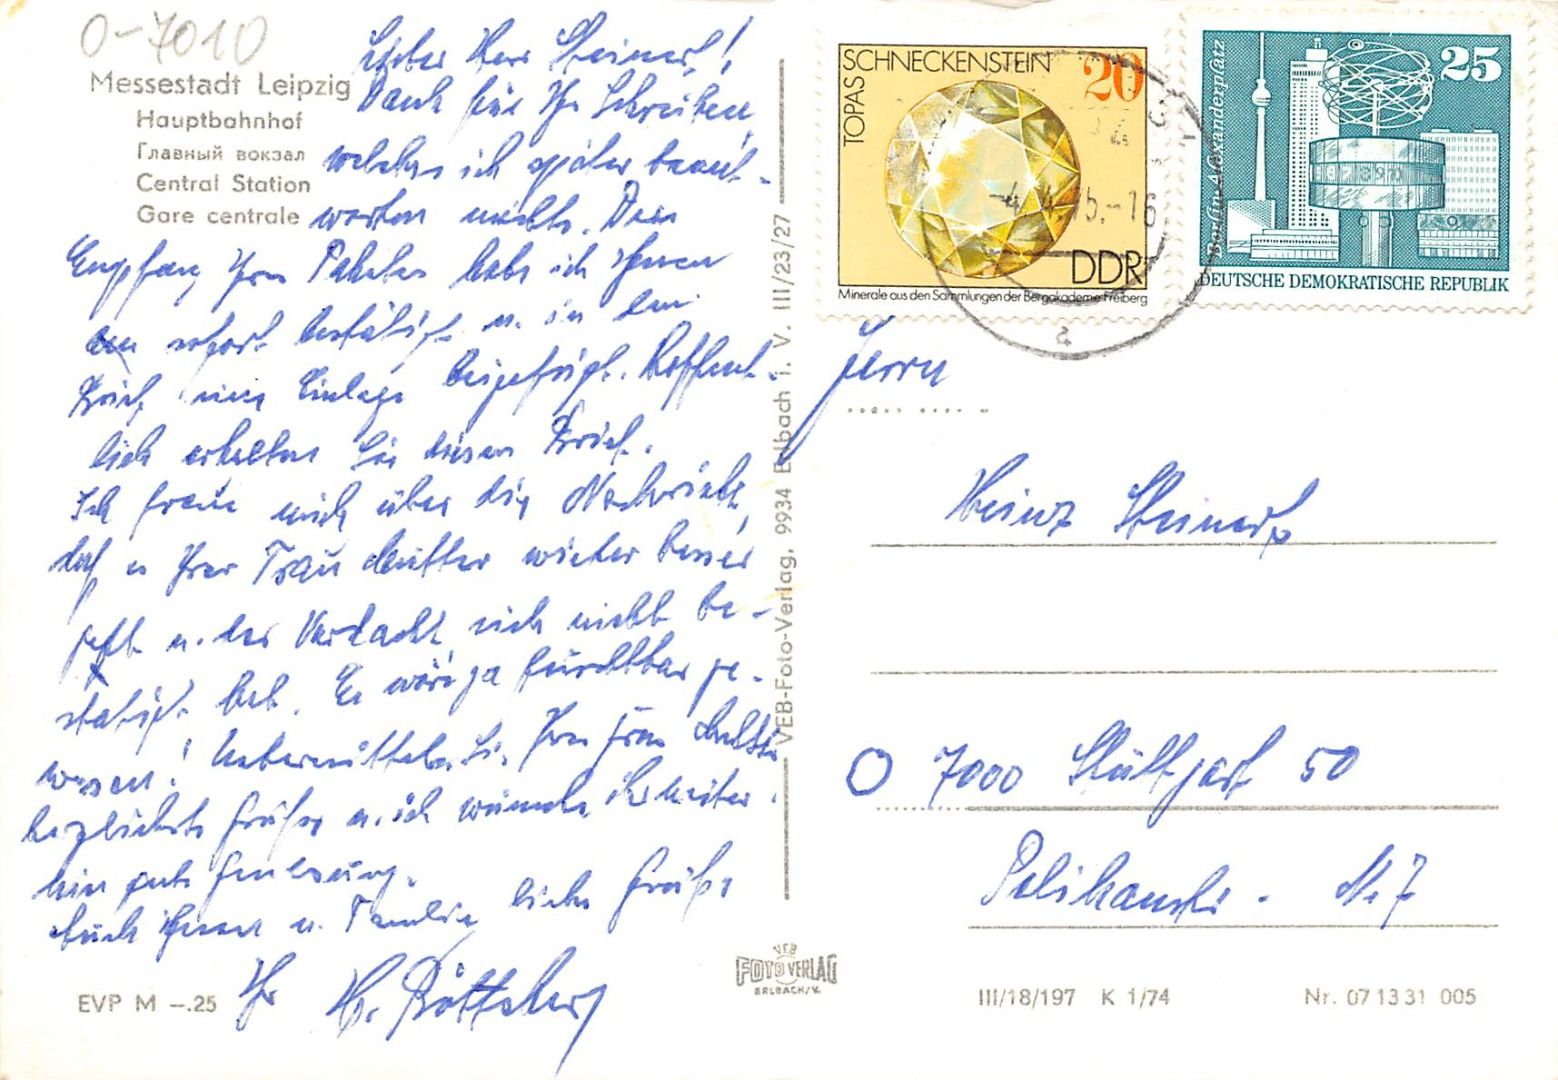 0-7010
Messestadt Leipzig
Hauptbahnhof
Главный вокзал
Central Station
Gare centrale
Lieber Herr Steinert!
Dank für Ihr Schreiben,
welches ich später beant-
worten möchte. Den
Empfang Ihres Paketes habe ich Ihnen
sofort bestätigt u. in ein
Brief, eine Einlage beigefügt. Hoffent-
lich erhalten Sie diesen Brief.
Ich freue mich über die Nachricht,
daß es Ihrer Frau Mutter wieder besser
geht u. der Verdacht sich nicht be-
stätigt hat. Es wäre ja furchtbar ge-
wesen! Uebermitteln Sie Ihrer Frau Mutter
herzlichste Grüße u. ich wünsche ihr weiter-
hin gute Genesung.
Auch Ihnen u. Familie liebe Grüße
Ihr H. Böttcher
EVP M -.25
VEB-Foto-Verlag, 9934 Erlbach i. V. III/23/27
VEB
FOTO VERLAG
ERLBACH/V.
TOPAS
SCHNECKENSTEIN
20
DDR
Minerale aus den Sammlungen der Bergakademie Freiberg
Berlin, Alexanderplatz
25
DEUTSCHE DEMOKRATISCHE REPUBLIK
a
Herrn
Heinz Steinert
O 7000 Stuttgart 50
Pelikanstr. Nr. 7
III/18/197 K 1/74
Nr. 07 13 31 005